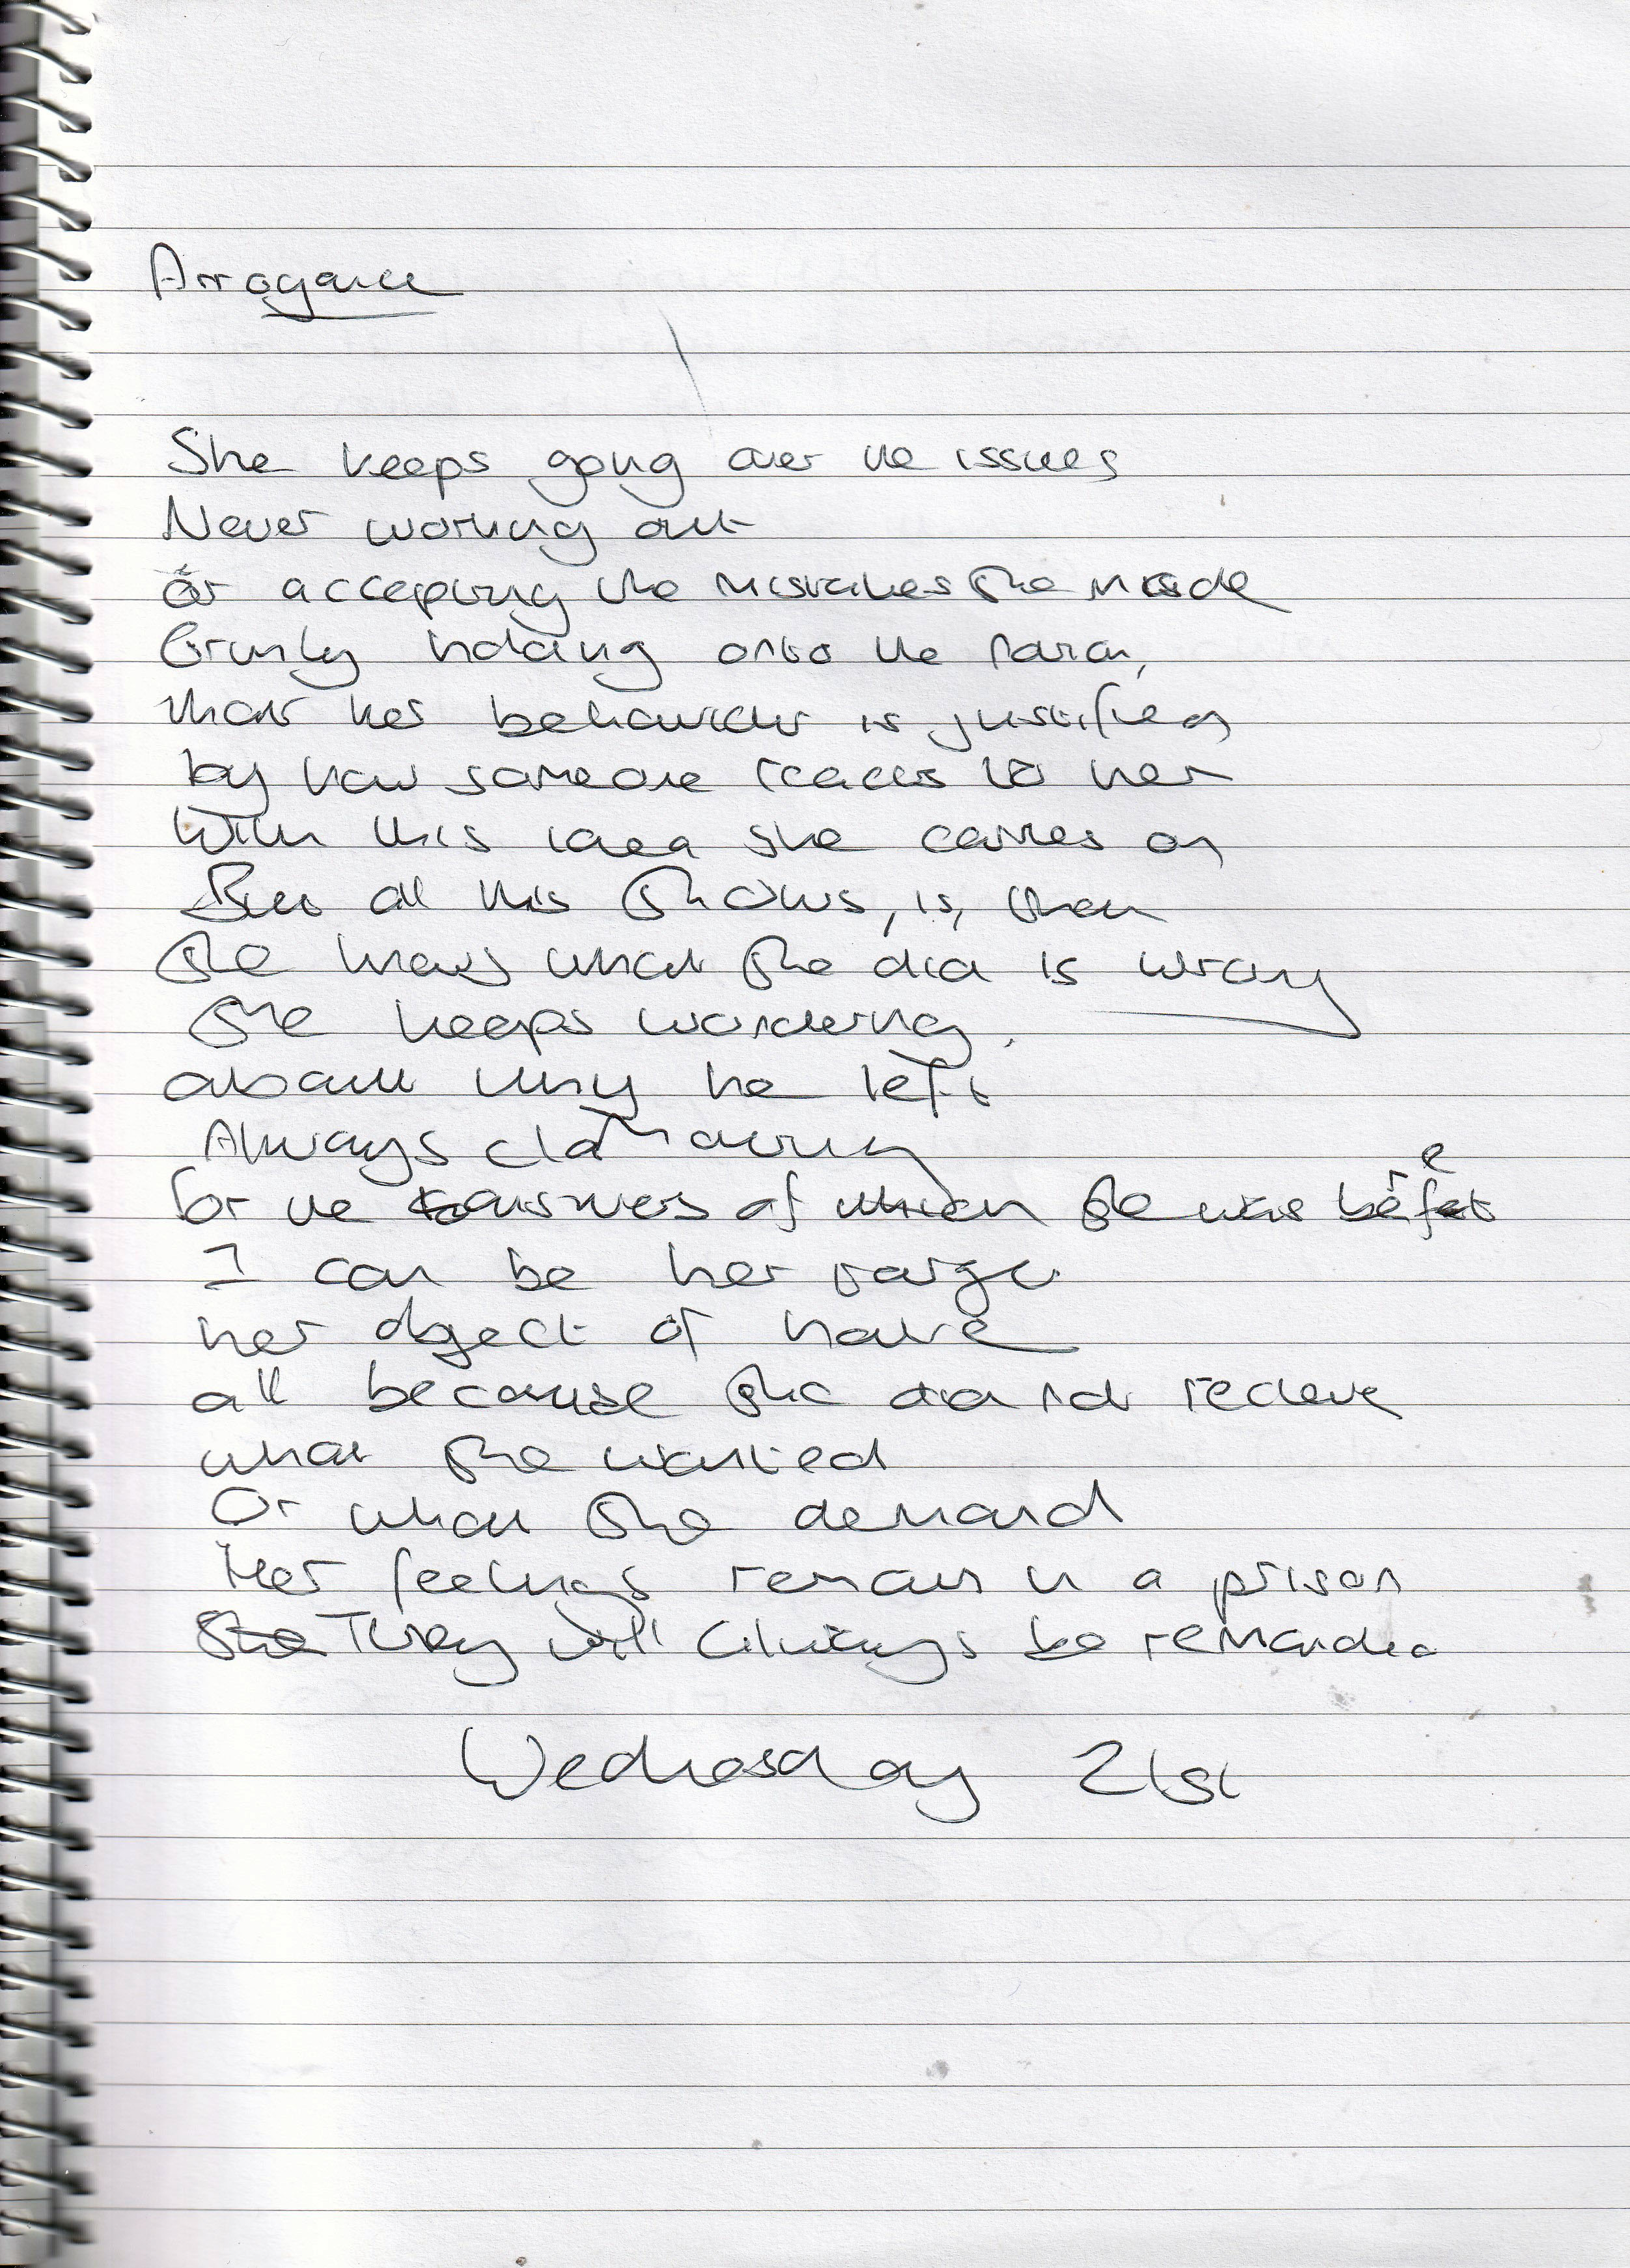 Arrogance
She keeps going over the issues
Never working out
Or accepting the mistakes she made
Firmly holding onto the
that her behaviour is justified
by how someone reacts to her
With this idea she carries on
But all this shows, is, that
She knows what she did is wrong
She keeps wondering,
about why he left
Always clamouring
for the answers of which she was bereft
I can be her target
her object of hate
all because she did not recieve
what she wanted
Or what she demand
Her feelings remain in a prison
She They will always be remanded
Wednesday 21st